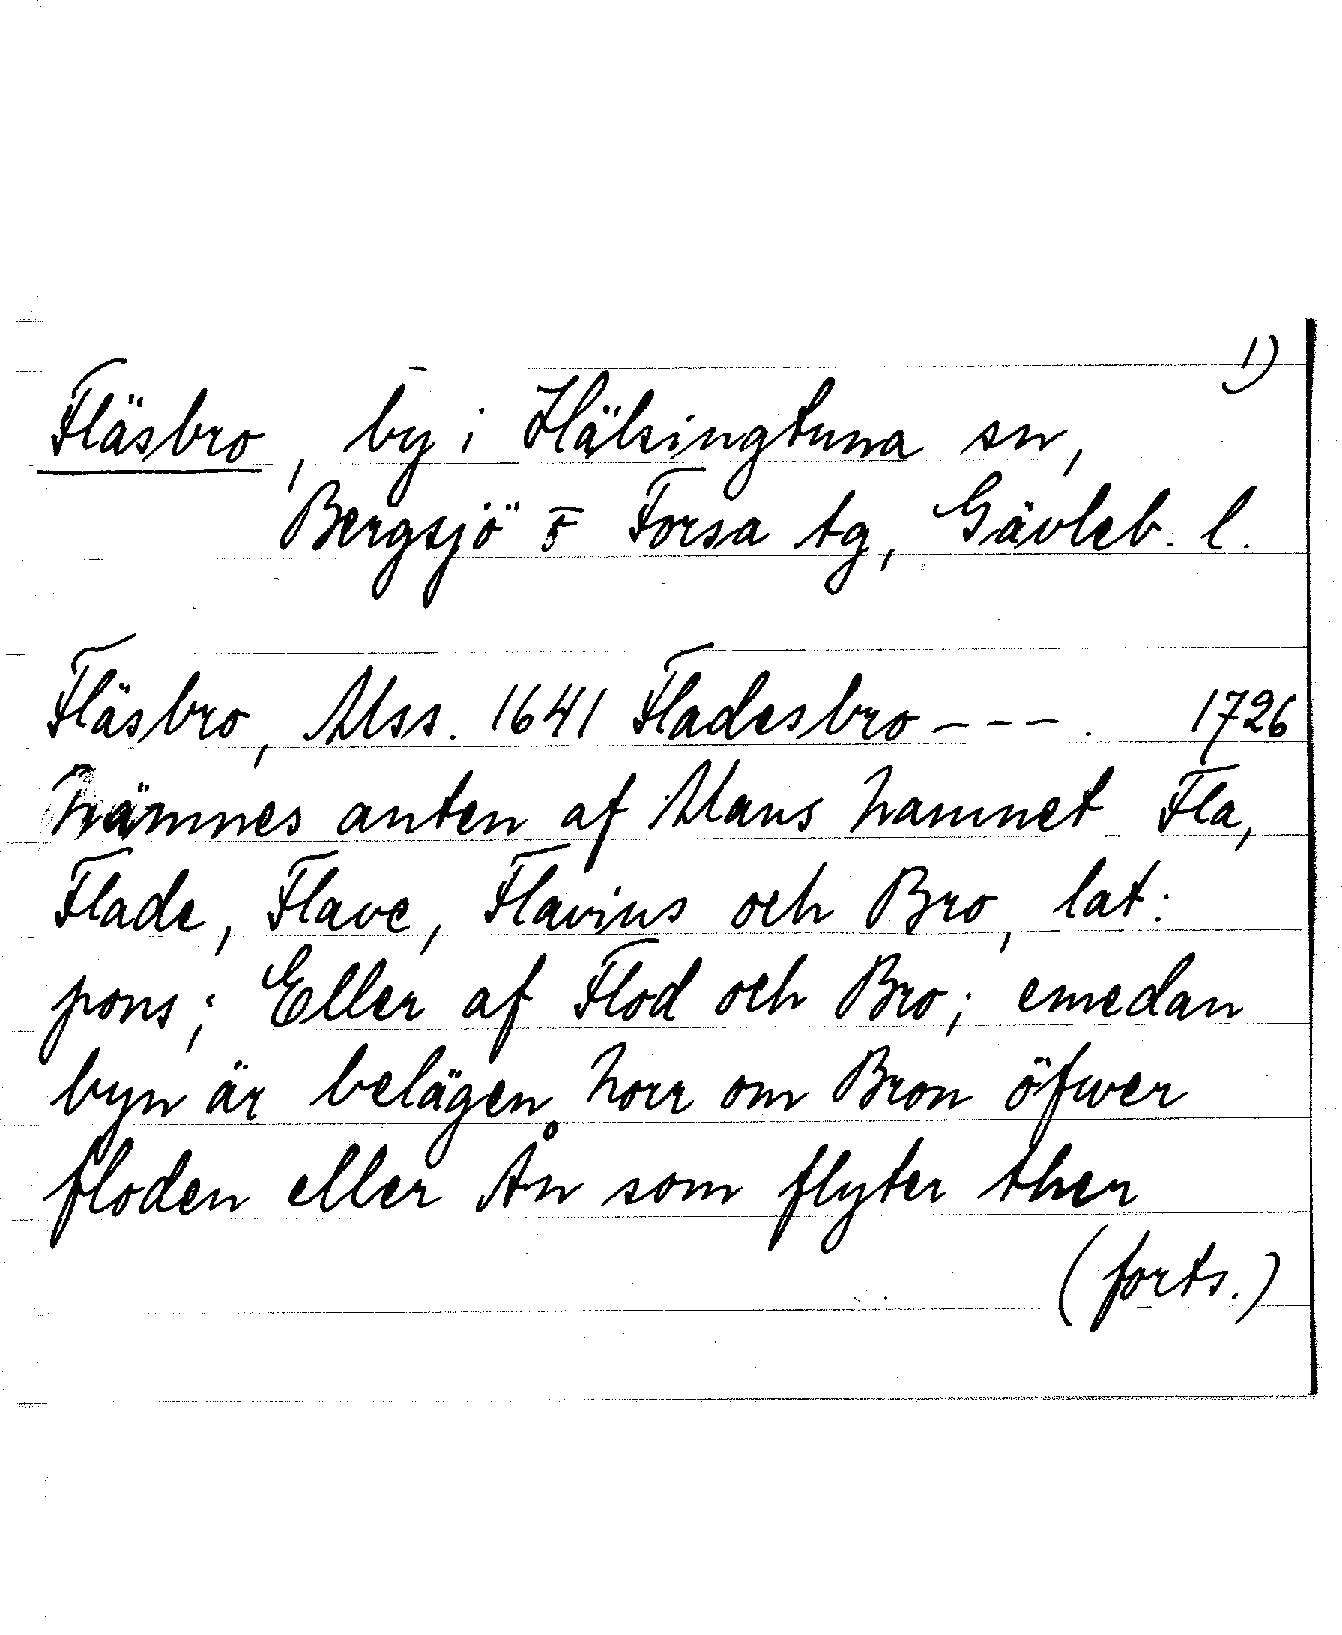 1)
Fläsbro, by i Hälsingtuna sn,
Bergsjö o Forsa tg, Gävleb. l.
Fläsbro, Mss. 1641 Fladesbro - - - . 1726
Nämnes anten af Mans Namnet Fla,
Flade, Flave, Flavius och Bro, lat:
pons; Eller af Flod och Bro; emedan
byn är belägen Norr om Bron öfwer
floden eller Ån som flyter ther
(forts.)